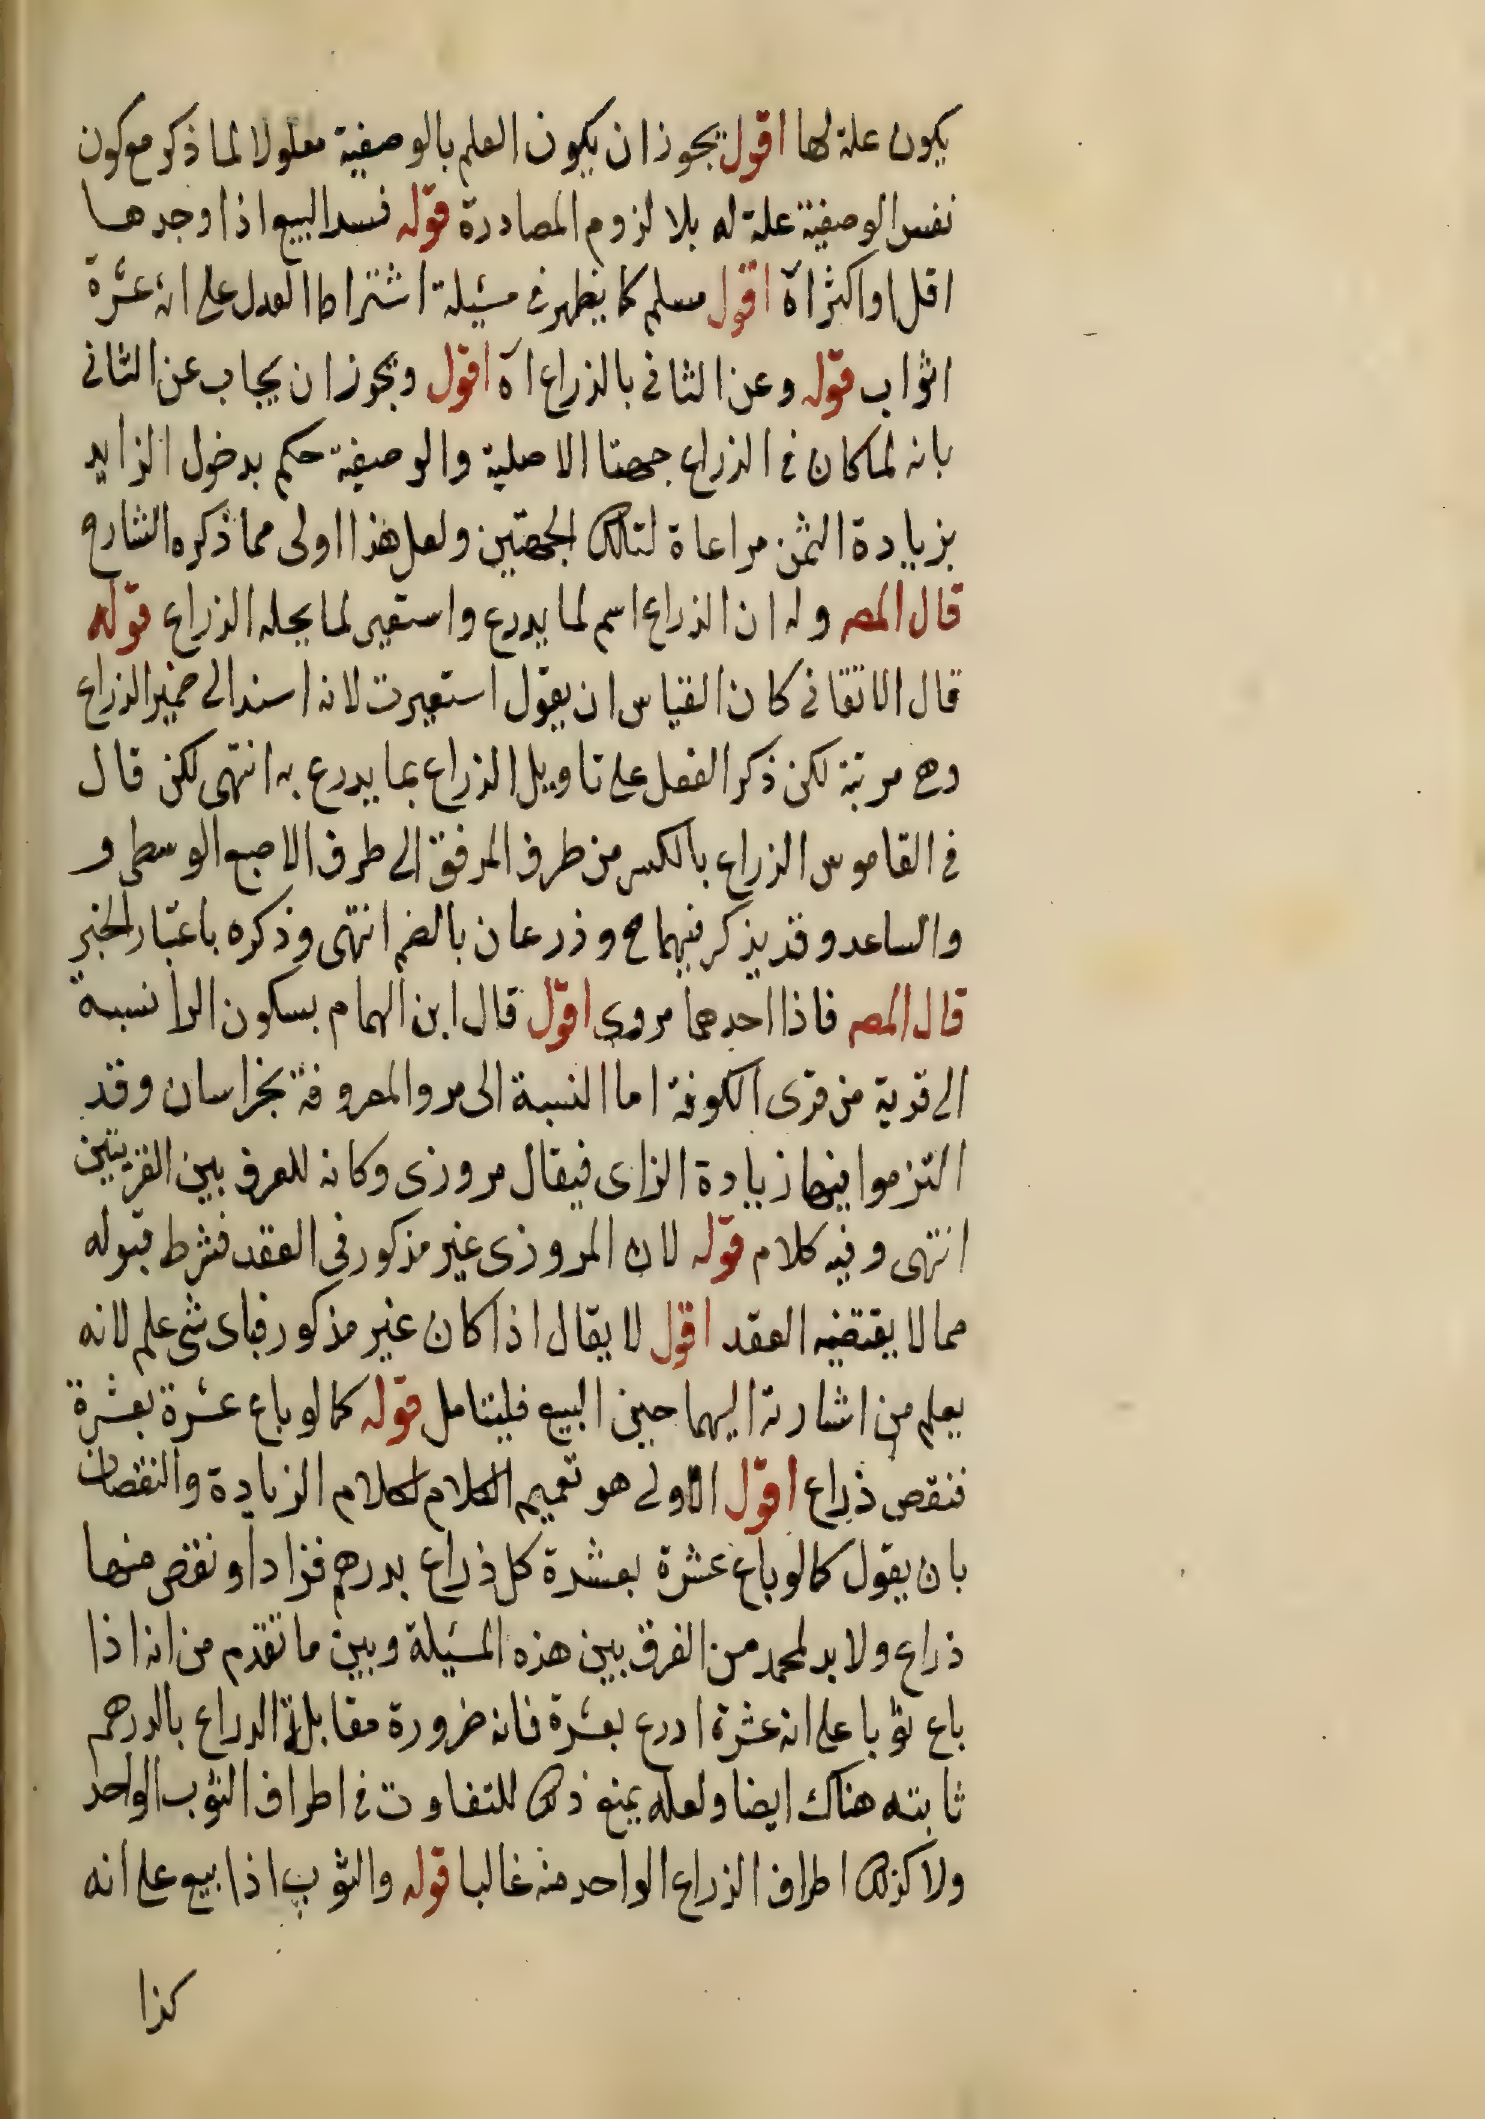 يكون علة لها اقول يجوز ان يكون العلم بالوصفية معلولا لما ذكر مع كون
نفس الوصفية علة له بلا لزوم المصادرة قوله فسد البيع اذا وجدها
اقل او اكثر اه اقول مسلم كما يظهر في مسئلة اشتراط العدل على انه عشرة
اثواب قوله وعن الثاني بالذراع اه اقول ويجوز ان يجاب عن الثاني
بانه لما كان في الذراع جهتا الاصلية والوصفية حكم بدخول الزايد
بزيادة الثمن مراعاة لتلك الجهتين ولعل هذا اولى مما ذكره الشارح
قال المصر وله ان الذراع اسم لما يدرع واستعير لما يحله الذراع قوله
قال الاتقاني كان القياس ان يقول استعيرت لانه اسند الى ضمير الذراع
وهي مرتبة لكن ذكر الفعل على تاويل الذراع بما يدرع به انتهى لكن قال
في القاموس الذراع بالكسر من طرف المرفق الى طرف الاصبع الوسطى و
والساعد وقد يذكر فيهما ح وذرعان بالضم انتهى وذكره باعتبار الخبر
قال المصر فاذا احدهما مروي اقول قال ابن الهمام بسكون الرا نسبة
الى قرية من قرى الكوفة اما النسبة الى مرو المعروفة بخراسان وقد
التزموا فيها زيادة الزاى فيقال مروزى وكانه للفرق بين القريتين
انتهى وفيه كلام قوله لان المروزى غير مذكور في العقد فشرط قبوله
مما لا يقتضيه العقد اقول لا يقال اذا كان غير مذكور فباى شى علم لانه
يعلم من اشارته اليهما حين البيع فليتامل قوله كما لو باع عشرة بعشرة
فنقص ذراع اقول الاولى هو تعميم الكلام لكلام الزيادة والنقصان
بان يقول كما لو باع عشرة بعشرة كل ذراع بدرهم فزاد او نقص منها
ذراع ولا بد لمحمد من الفرق بين هذه المسئلة وبين ما تقدم من انه اذا
باع ثوبا على انه عشرة ادرع بعشرة فانه ضرورة مقابلة الدراع بالدرهم
ثابته هناك ايضا ولعله يمنع ذلك للتفاوت في اطراف الثوب الواحد
ولا كذلك اطراف الذراع الواحد منه غالبا قوله والثوب اذا بيع على انه
كذا